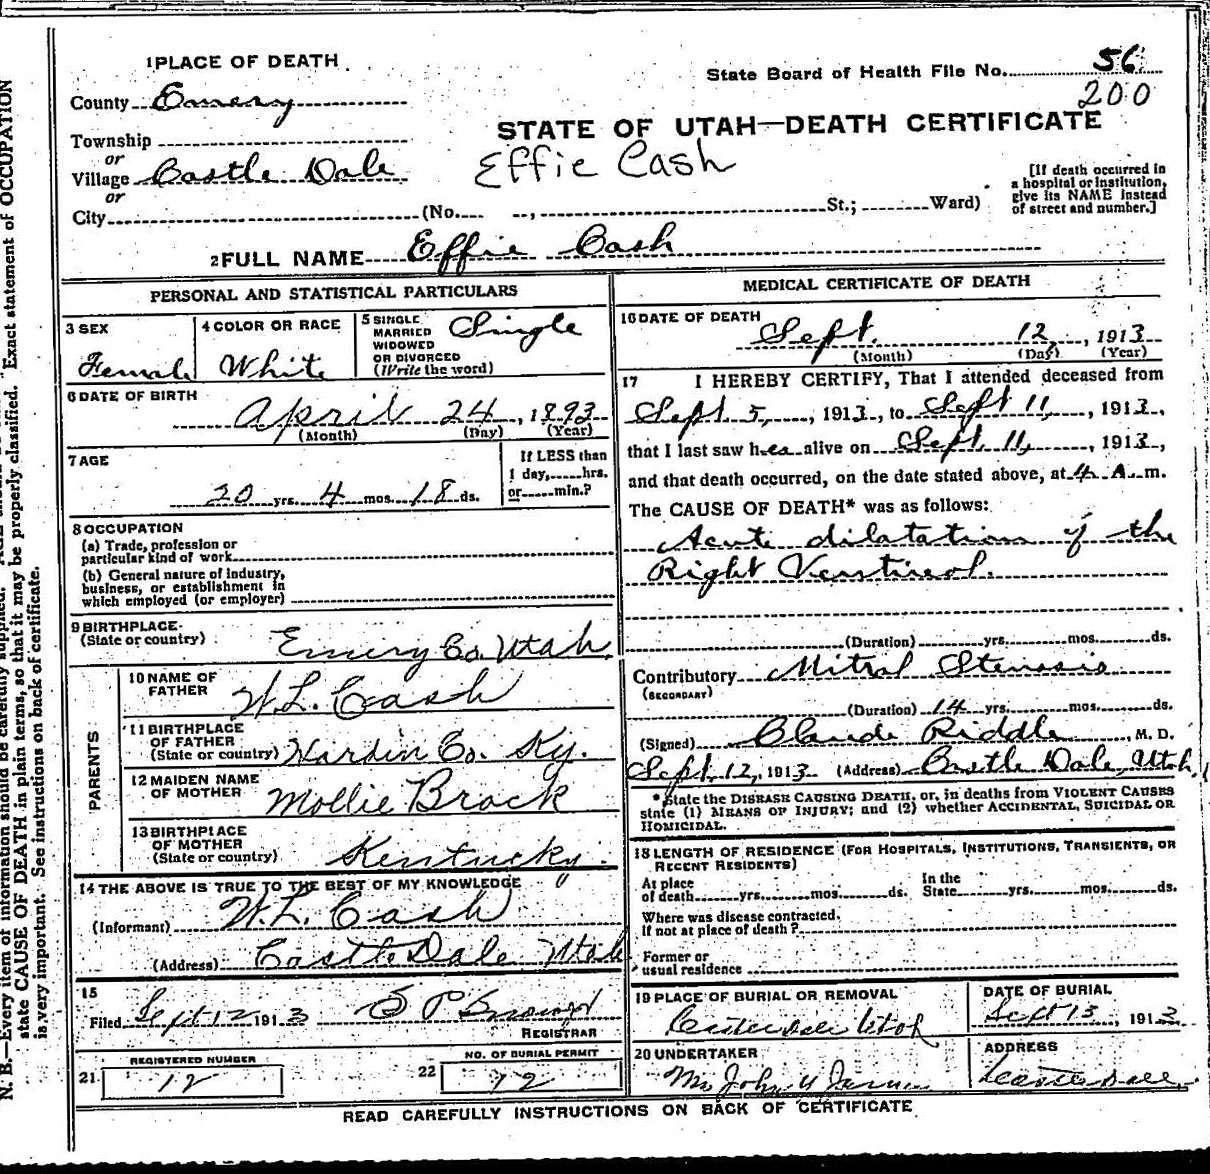 1 PLACE OF DEATH
State Board of Health File No. 56
200
County Emery
STATE OF UTAH—DEATH CERTIFICATE
Township
or
Village Castle Dale
Effie Cash
[If death occurred in
a hospital or institution,
give its NAME instead
of street and number.]
or
City (No. , St.; Ward)
2 FULL NAME Effie Cash
PERSONAL AND STATISTICAL PARTICULARS
3 SEX
Female
4 COLOR OR RACE
White
5 SINGLE
MARRIED
WIDOWED
OR DIVORCED
(Write the word)
Single
6 DATE OF BIRTH
April 24, 1893
(Month) (Day) (Year)
7 AGE
20 yrs. 4 mos. 18 ds.
If LESS than
1 day, hrs.
or min.?
8 OCCUPATION
(a) Trade, profession or
particular kind of work
(b) General nature of industry,
business, or establishment in
which employed (or employer)
9 BIRTHPLACE
(State or country)
Emery Co. Utah
PARENTS
10 NAME OF
FATHER
W. L. Cash
11 BIRTHPLACE
OF FATHER
(State or country)
Hardin Co. Ky.
12 MAIDEN NAME
OF MOTHER
Mollie Brock
13 BIRTHPLACE
OF MOTHER
(State or country)
Kentucky.
14 THE ABOVE IS TRUE TO THE BEST OF MY KNOWLEDGE
(Informant) W. L. Cash
(Address) Castle Dale Utah
15
Filed Sept 12 1913
REGISTRAR
REGISTERED NUMBER
21 12
NO. OF BURIAL PERMIT
22 12
MEDICAL CERTIFICATE OF DEATH
16 DATE OF DEATH
Sept. 12, 1913
(Month) (Day) (Year)
17 I HEREBY CERTIFY, That I attended deceased from
Sept 5, 1913, to Sept 11, 1913,
that I last saw her alive on Sept. 11, 1913,
and that death occurred, on the date stated above, at 4 A. m.
The CAUSE OF DEATH* was as follows:
Acute dilatation of the
Right
(Duration) yrs. mos. ds.
Contributory Mitral Stenosis
(SECONDARY)
(Duration) 14 yrs. mos. ds.
(Signed) Claude Riddle, M. D.
Sept. 12, 1913 (Address) Castle Dale, Utah.
*State the DISEASE CAUSING DEATH, or, in deaths from VIOLENT CAUSES
state (1) MEANS OF INJURY; and (2) whether ACCIDENTAL, SUICIDAL OR
HOMICIDAL.
18 LENGTH OF RESIDENCE (FOR HOSPITALS, INSTITUTIONS, TRANSIENTS, OR
RECENT RESIDENTS)
At place
of death yrs. mos. ds.
In the
State yrs. mos. ds.
Where was disease contracted,
if not at place of death?
Former or
usual residence
19 PLACE OF BURIAL OR REMOVAL
Castle Dale Utah
DATE OF BURIAL
Sept 13, 1913
20 UNDERTAKER
John
ADDRESS
Castle Dale
READ CAREFULLY INSTRUCTIONS ON BACK OF CERTIFICATE
N. B.—Every item of information should be carefully supplied.
Exact statement of OCCUPATION
state CAUSE OF DEATH in plain terms, so that it may be properly classified.
is very important. See instructions on back of certificate.